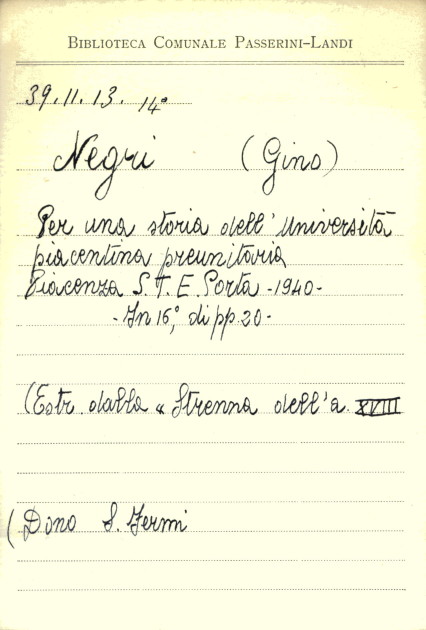 BIBLIOTECA COMUNALE PASSERINI-LANDI
39.11.13. 14°
Negri (Gino)
Per una storia dell'Università
piacentina preunitaria
Piacenza S.T.E. Porta - 1940 -
- In 16°, di pp. 20 -
(Estr. dalla « Strenna dell'a. XVIII
(Dono S. Fermi